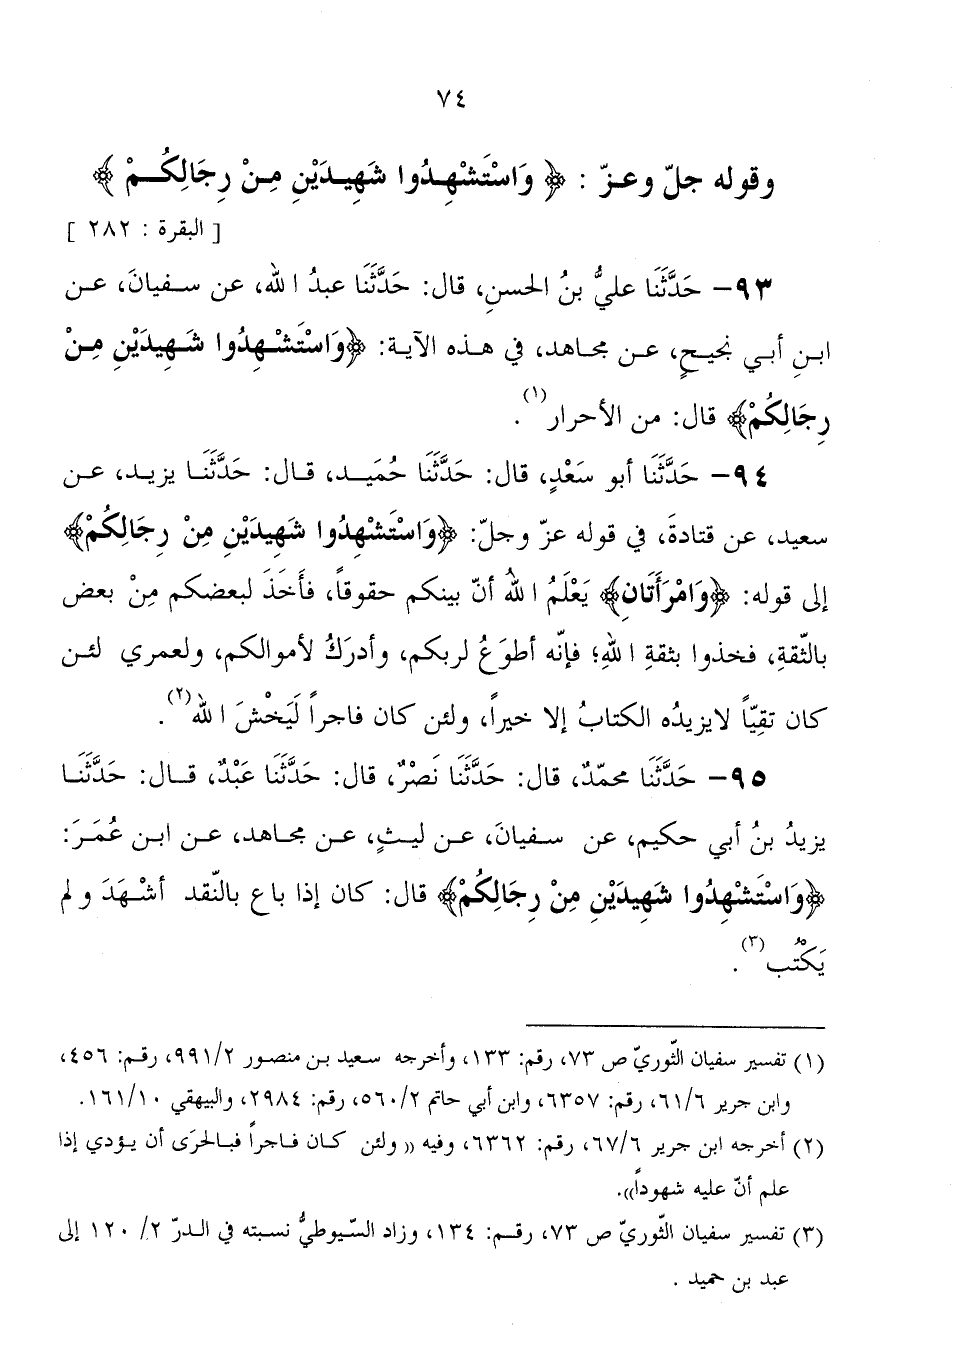 ٧٤
وقوله جلّ وعزّ : ﴿ وَاسْتَشْهِدُوا شَهِيدَيْنِ مِنْ رِجَالِكُمْ ﴾
[ البقرة : ٢٨٢ ]
٩٣- حَدَّثَنَا عليُّ بنُ الحسنِ، قال: حَدَّثَنَا عبدُ الله، عن سفيانَ، عن
ابنِ أبي نجيحٍ، عن مجاهد، في هذه الآية: ﴿وَاسْتَشْهِدُوا شَهِيدَيْنِ مِنْ
رِجَالِكُمْ﴾ قال: من الأحرار(١).
٩٤- حَدَّثَنَا أبو سَعْدٍ، قال: حَدَّثَنَا حُمَيد، قال: حَدَّثَنَا يزيد، عن
سعيد، عن قتادةَ، في قوله عزّ وجلّ: ﴿وَاسْتَشْهِدُوا شَهِيدَيْنِ مِنْ رِجَالِكُمْ﴾
إلى قوله: ﴿وَامْرَأَتَانِ﴾ يَعْلَمُ اللهُ أنّ بينكم حقوقاً، فأَخَذَ لبعضكم مِنْ بعض
بالثّقةِ، فخذوا بثقةِ اللهِ؛ فإنّه أطوَعُ لربكم، وأدرَكُ لأموالكم، ولعمري لئن
كان تقيّاً لايزيدُه الكتابُ إلا خيراً، ولئن كان فاجراً لَيَخْشَ الله(٢).
٩٥- حَدَّثَنَا محمّدٌ، قال: حَدَّثَنَا نَصْرٌ، قال: حَدَّثَنَا عَبْدٌ، قال: حَدَّثَنَا
يزيدُ بنُ أبي حكيم، عن سفيانَ، عن ليثٍ، عن مجاهد، عن ابن عُمَرَ:
﴿وَاسْتَشْهِدُوا شَهِيدَيْنِ مِنْ رِجَالِكُمْ﴾ قال: كان إذا باع بالنّقد أشْهَدَ ولم
يَكْتُب(٣).
(١) تفسير سفيان الثّوريّ ص ٧٣، رقم: ١٣٣، وأخرجه سعيد بن منصور ٩٩١/٢، رقم: ٤٥٦،
وابن جرير ٦١/٦، رقم: ٦٣٥٧، وابن أبي حاتم ٥٦٠/٢، رقم: ٢٩٨٤، والبيهقي ١٦١/١٠.
(٢) أخرجه ابن جرير ٦٧/٦، رقم: ٦٣٦٢، وفيه «ولئن كان فاجراً فبالحرَى أن يؤدي إذا
علم أنّ عليه شهوداً».
(٣) تفسير سفيان الثّوريّ ص ٧٣، رقم: ١٣٤، وزاد السّيوطيُّ نسبته في الدرّ ٢/ ١٢٠ إلى
عبد بن حميد .